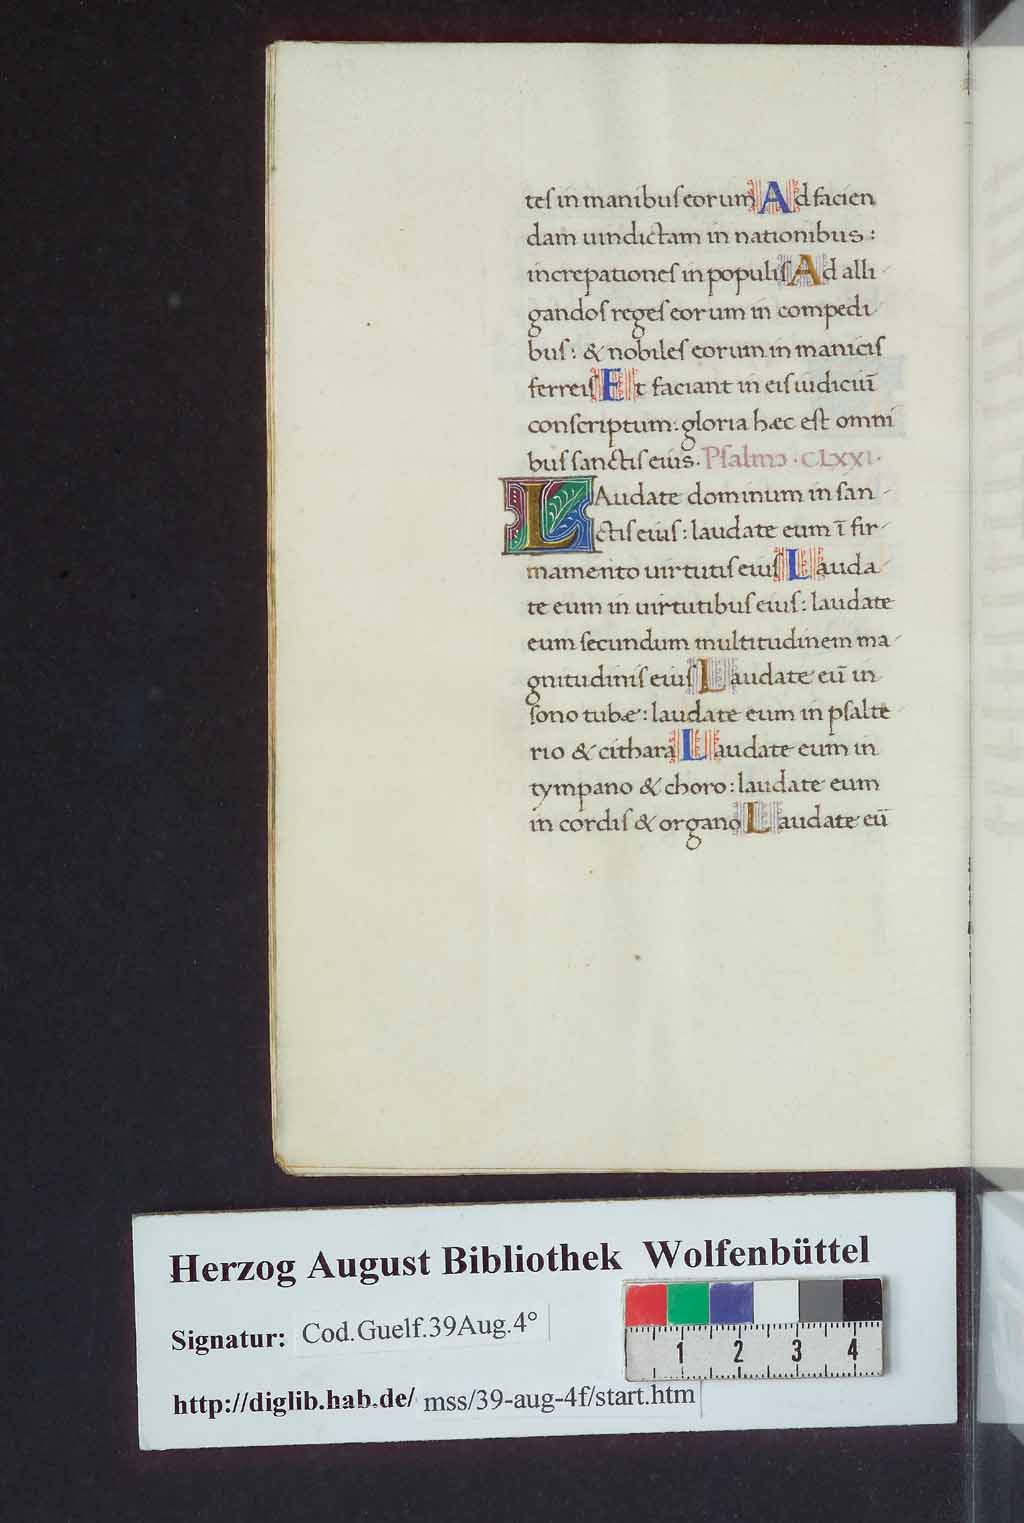 teſ in manibuſ eorum Ad facien
dam uindictam in nationibus :
increpationeſ in populiſ Ad alli
gandoſ regeſ eorum in compedi
buſ : & nobileſ eorum in maniciſ
ferreiſ Et faciant in eiſ iudiciū
conſcriptum : gloria hæc eſt omni
buſ ſanctiſ eius. Pſalmꝰ .CLXXI.
LAudate dominum in ſan
ctiſ eiuſ : laudate eum ī fir
mamento uirtutiſ eiuſ Lauda
te eum in uirtutibuſ eiuſ : laudate
eum ſecundum multitudinem ma
gnitudiniſ eiuſ Laudate eū in
ſono tubæ : laudate eum in pſalte
rio & cithara Laudate eum in
tympano & choro : laudate eum
in cordiſ & organo Laudate eū
Herzog August Bibliothek Wolfenbüttel
Signatur: Cod.Guelf.39Aug.4°
1 2 3 4
http://diglib.hab.de/ mss/39-aug-4f/start.htm